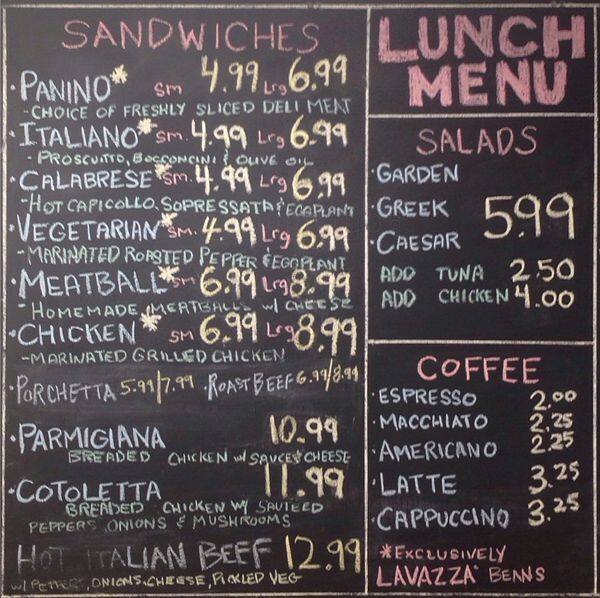 SANDWICHES
·PANINO* Sm 4.99 Lrg 6.99
-CHOICE OF FRESHLY SLICED DELI MEAT
·ITALIANO* Sm. 4.99 Lrg 6.99
-PROSCUITTO, BOCCONCINI & OLIVE OIL
·CALABRESE* Sm. 4.99 Lrg 6.99
-HOT CAPICOLLO, SOPRESSATA & EGGPLANT
·VEGETARIAN* Sm. 4.99 Lrg 6.99
-MARINATED ROASTED PEPPER & EGGPLANT
·MEATBALL* Sm 6.99 Lrg 8.99
-HOMEMADE MEATBALLS W/ CHEESE
·CHICKEN* Sm 6.99 Lrg 8.99
-MARINATED GRILLED CHICKEN
·PORCHETTA 5.99/7.99 ·ROAST BEEF 6.99/8.99
·PARMIGIANA 10.99
BREADED CHICKEN W/ SAUCE & CHEESE
·COTOLETTA 11.99
BREADED CHICKEN W/ SAUTEED
PEPPERS ONIONS & MUSHROOMS
HOT ITALIAN BEEF 12.99
W/ PEPPERS, ONIONS, CHEESE, PICKLED VEG
LUNCH
MENU
SALADS
·GARDEN
·GREEK 5.99
·CAESAR
ADD TUNA 2.50
ADD CHICKEN 4.00
COFFEE
·ESPRESSO 2.00
·MACCHIATO 2.25
·AMERICANO 2.25
·LATTE 3.25
·CAPPUCCINO 3.25
*EXCLUSIVELY
LAVAZZA BEANS